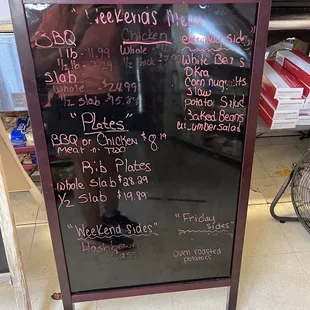 "Weekends Menu
BBQ
1 lb - 11.99
1/2 lb -
slab
$24.99
1/2 slab - 15.8
Chicken
Whole
1/2 thick
sides"
White Beans
Okra
Corn nuggets
slaw
potato
Baked Beans
cucumber salad
"Plates"
BBQ or Chicken $8.19
meat 'n' TWO
Rib Plates
whole Slab $28.29
1/2 Slab $19.89
"Weekend sides"
Hashbrown
"Friday
sides"
oven roasted
potatoes